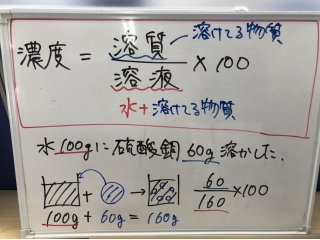 濃度 = 溶質/溶液 × 100
溶けてる物質
水+溶けてる物質
水100gに硫酸銅60g溶かした.
+ → 60/160 ×100
100g + 60g = 160g